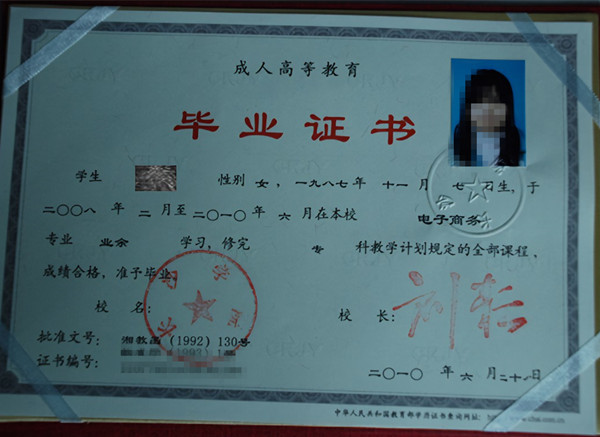 成人高等教育
毕业证书
学生 性别 女，一九八七年 十一月 七 日生，于
二〇〇八 年 二 月至二〇一〇年 六 月在本校 电子商务
专业 业余 学习，修完 专 科教学计划规定的全部课程，
成绩合格，准予毕业。
校 名： 校 长：
批准文号：湘教函（1992）130号
证书编号：
二〇一〇 年 六 月 二十八日
中华人民共和国教育部学历证书查询网址：